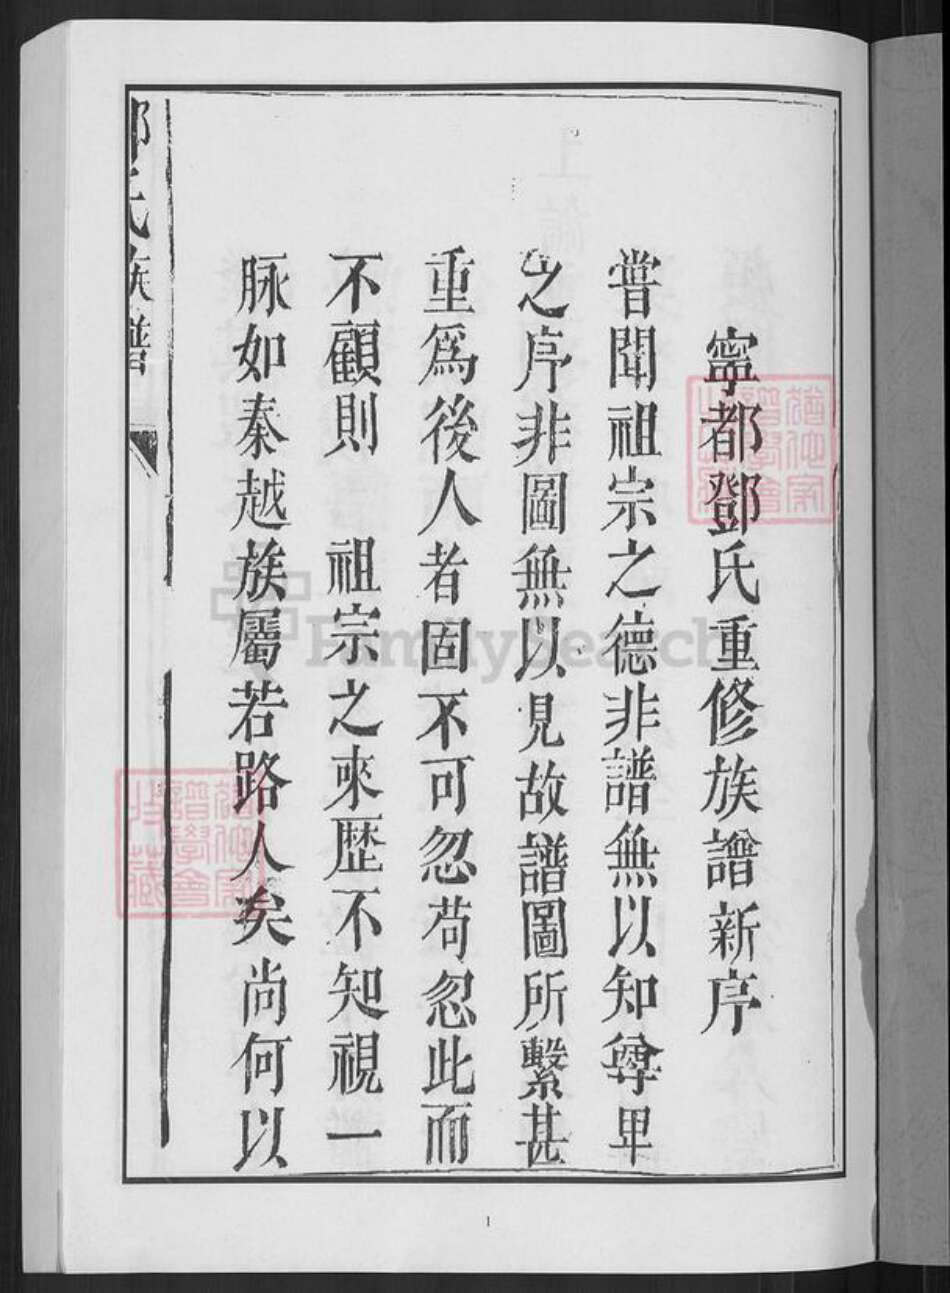 寧都鄧氏重修族譜新序
嘗聞祖宗之德非譜無以知尊卑
之序非圖無以見故譜圖所繫甚
重爲後人者固不可忽苟忽此而
不顧則　祖宗之來歷不知視一
脉如秦越族屬若路人矣尚何以
氏族譜
FamilySearch
1